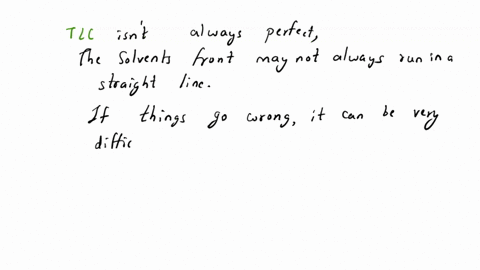 TLC isn't always perfect,
The Solvents front may not always run in a
straight line.
If things go wrong, it can be very
diffic